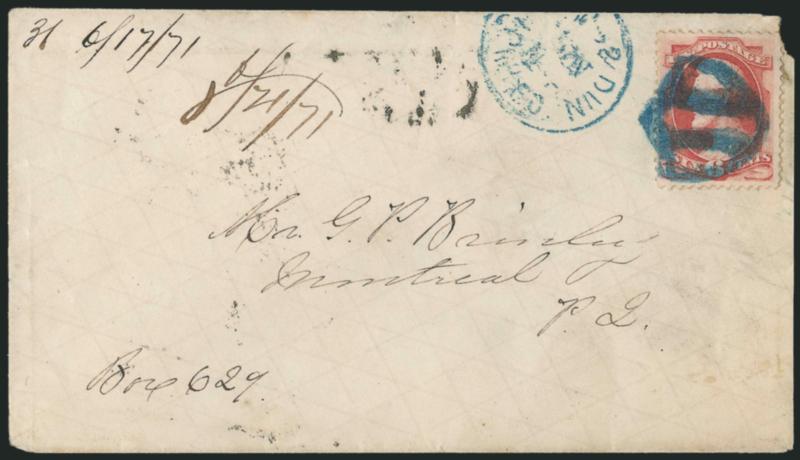 31 6/17/71
6/21/71
Mr. G. P. Brinley
Montreal
P. Q.
Box 629.
POSTAGE
SIX CENTS